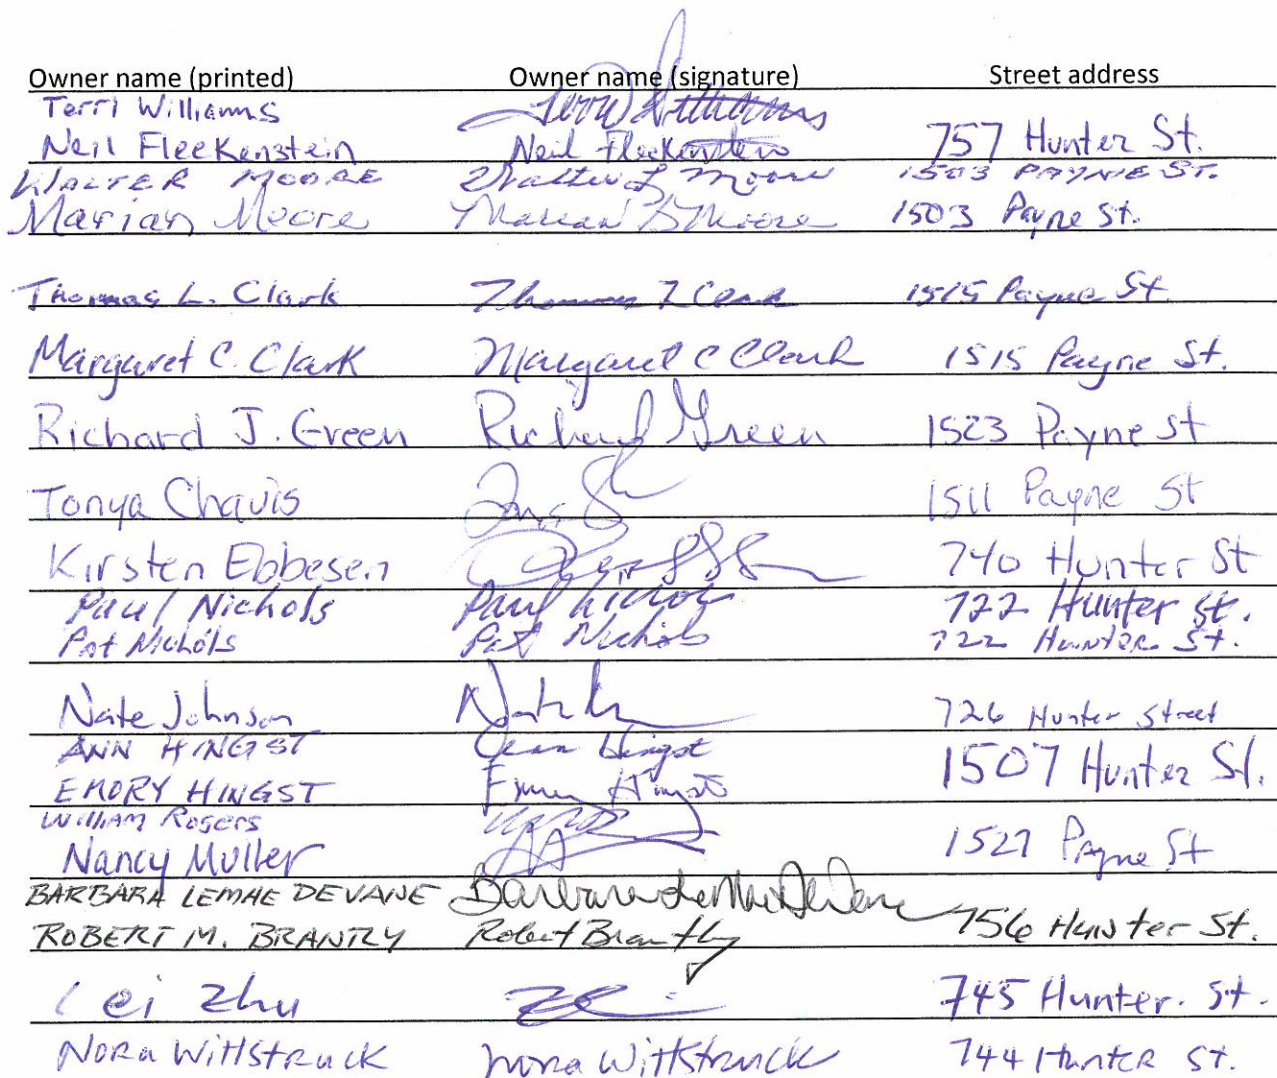 Owner name (printed) Owner name (signature) Street address
Terri Williams Terri Williams
Neil Fleckenstein Neil Fleckenstein 757 Hunter St.
WALTER MOORE Walter L Moore 1503 PAYNE ST.
Marian Moore Marian B Moore 1503 Payne St.
Thomas L. Clark Thomas L Clark 1515 Payne St
Margaret C. Clark Margaret C Clark 1515 Payne St.
Richard J. Green Richard Green 1523 Payne St
Tonya Chavis 1511 Payne St
Kirsten Ebbesen 740 Hunter St
Paul Nichols Paul Nichols 722 Hunter St.
Pat Nichols Pat Nichols 722 Hunter St.
Nate Johnson 726 Hunter Street
ANN HINGST Ann Hingst 1507 Hunter St.
EMORY HINGST Emory Hingst
William Rogers
Nancy Muller 1527 Payne St
BARBARA LEMAE DEVANE 756 Hunter St.
ROBERT M. BRANTLY Robert Brantly
Lei Zhu 745 Hunter. St.
Nora Wittstruck Nora Wittstruck 744 Hunter St.